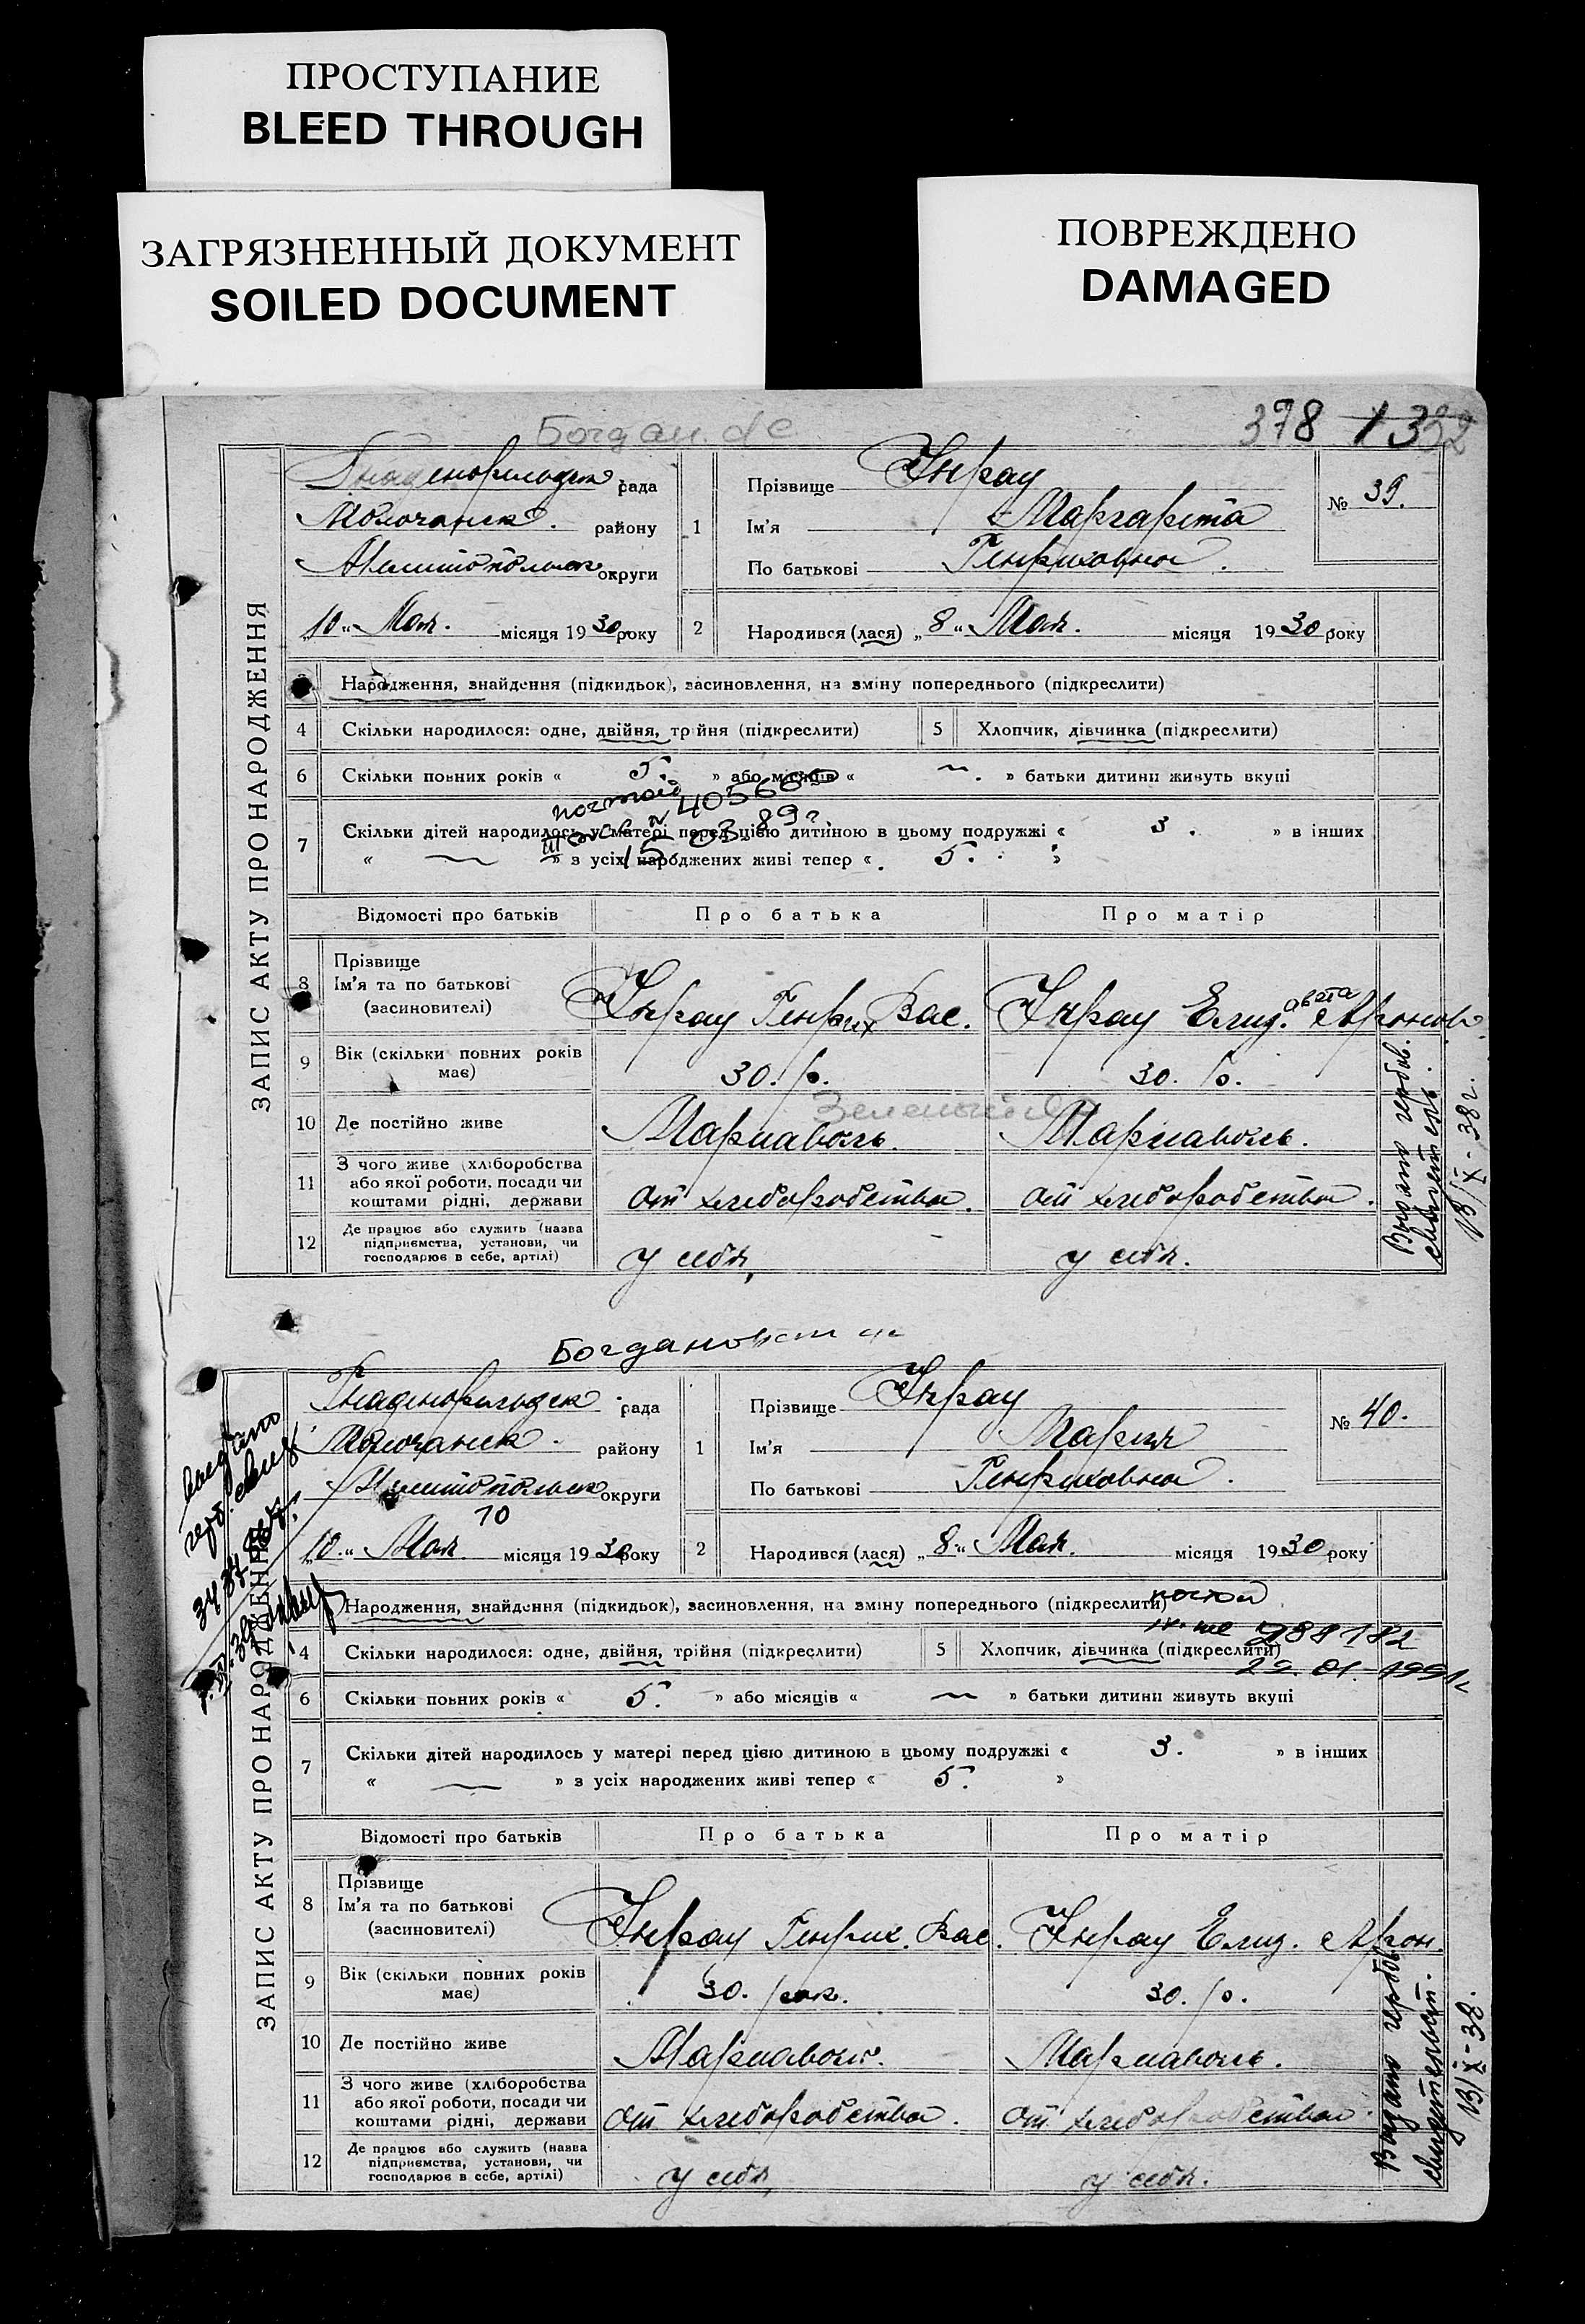 ПРОСТУПАНИЕ
BLEED THROUGH
ЗАГРЯЗНЕННЫЙ ДОКУМЕНТ
SOILED DOCUMENT
ПОВРЕЖДЕНО
DAMAGED
378 1332
Богдан.
ЗАПИС АКТУ ПРО НАРОДЖЕННЯ
Гнаденфельдск рада
Молочанск. району
Мелитопольск округи
„10“ Мая. місяця 1930 року
1 Прізвище Унрау
Ім'я Маргарета
По батькові Генриховна.
№ 39.
2 Народився (лася) „8“ Мая. місяця 1930 року
Народження, знайдення (підкидьок), засиновлення, на зміну попереднього (підкреслити)
4 Скільки народилося: одне, двійня, трійня (підкреслити)
5 Хлопчик, дівчинка (підкреслити)
6 Скільки повних років « 5. » або місяців « — . » батьки дитини живуть вкупі
повторно
№ 405660
15 03 89 г.
7 Скільки дітей народилось у матері перед цією дитиною в цьому подружжі « 3. » в інших
« — » з усіх народжених живі тепер « 5. »
Відомості про батьків Про батька Про матір
8 Прізвище
Ім'я та по батькові
(засновителі)
Унрау Генрих Вас. Унрау Елиз.авета Аронов.
9 Вік (скільки повних років
має)
30. р. 30. р.
10 Де постійно живе Мариаволь. Мариаволь.
11 З чого живе (хліборобства
або якої роботи, посади чи
коштами рідні, держави
от хлеборобства. от хлеборобства.
12 Де працює або служить (назва
підприємства, установи, чи
господарює в себе, артілі)
у себя, у себя.
Выдано гербов.
свидетель.
13/X-38 г.
Богдановск
ЗАПИС АКТУ ПРО НАРОДЖЕННЯ
Гнаденфельдск рада
Молочанск. району
Мелитопольск округи
10
„10“ Мая. місяця 1930 року
1 Прізвище Унрау
Ім'я Мария
По батькові Генриховна.
№ 40.
2 Народився (лася) „8“ Мая. місяця 1930 року
Народження, знайдення (підкидьок), засиновлення, на зміну попереднього (підкреслити)
4 Скільки народилося: одне, двійня, трійня (підкреслити)
5 Хлопчик, дівчинка (підкреслити)
788182
29. 01. 1991 г
6 Скільки повних років « 5. » або місяців « — » батьки дитини живуть вкупі
7 Скільки дітей народилось у матері перед цією дитиною в цьому подружжі « 3. » в інших
« — » з усіх народжених живі тепер « 5. »
Відомості про батьків Про батька Про матір
8 Прізвище
Ім'я та по батькові
(засиновителі)
Унрау Генрих. Вас. Унрау Елиз. Арон.
9 Вік (скільки повних років
має)
30. рок. 30. р.
10 Де постійно живе Мариаволь. Мариаволь.
11 З чого живе (хліборобства
або якої роботи, посади чи
коштами рідні, держави
от хлеборобства. от хлеборобства
12 Де працює або служить (назва
підприємства, установи, чи
господарює в себе, артілі)
у себя, у себя.
Выдано гербов
свидетельст.
13/X-38.